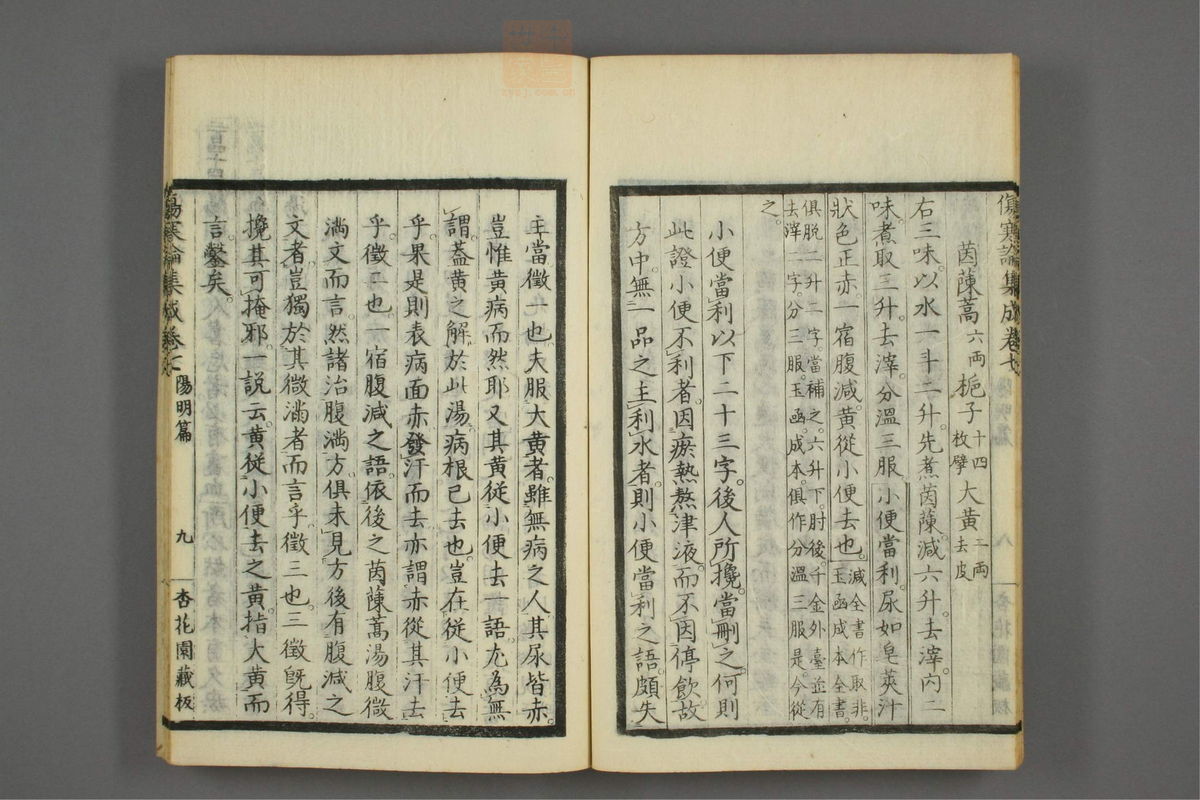 傷寒論集成卷七
茵蔯蒿六兩 梔子十四枚擘 大黃二兩去皮
右三味。以水一斗二升。先煮茵蔯。減六升。去滓。內二
味。煮取三升。去滓。分溫三服。小便當利。尿如皂莢汁
狀。色正赤。一宿腹減。黃從小便去也。減全書作取非。玉函成本全書。
俱脫二升二字。當補之。六升下。肘後。千金外臺並有去滓二字。分三服。玉函。成本。俱作分溫三服。是。今從
之。
小便當利以下二十三字。後人所攙。當刪之。何則
此證小便不利者。因瘀熱熬津液。而不因停飲。故
方中無一品之主利水者。則小便當利之語。頗失
主當。徵一也。夫服大黃者。雖無病之人。其尿皆赤。
豈惟黃病而然耶。又其黃從小便去一語。尤為無
謂。蓋黃之解。於此湯。病根已去也。豈在從小便去
乎。果是則表病面赤。發汗而去。亦謂赤從其汗去
乎。徵二也。一宿腹減之語。依後之茵蔯蒿湯腹微
滿文而言。然諸治腹滿方。俱未見方後有腹減之
文者。豈獨於其微滿者而言乎。徵三也。三徵既得。
攙其可掩邪。一說云。黃從小便去之黃。指大黃而
言。鑿矣。
傷寒論集成卷七
陽明篇
九
杏花園藏板